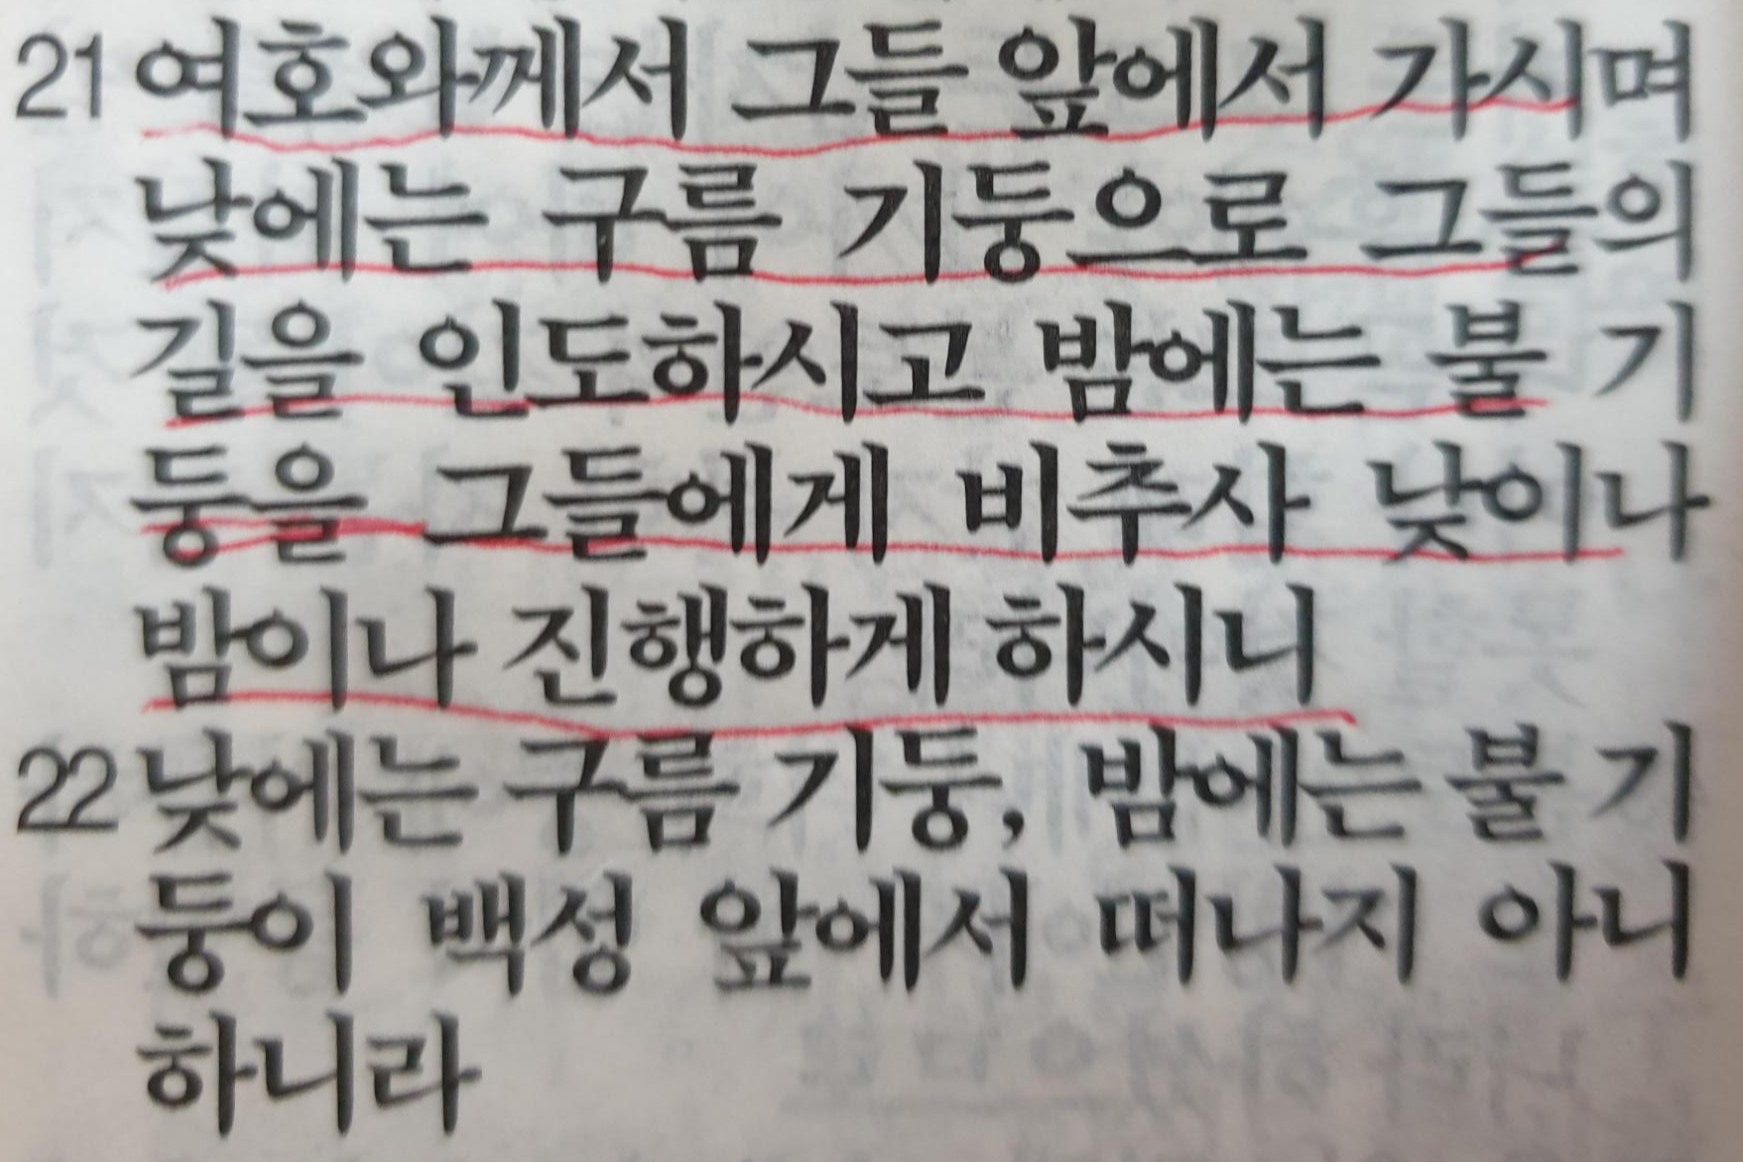 21 여호와께서 그들 앞에서 가시며
낮에는 구름 기둥으로 그들의
길을 인도하시고 밤에는 불 기
둥을 그들에게 비추사 낮이나
밤이나 진행하게 하시니
22 낮에는 구름 기둥, 밤에는 불 기
둥이 백성 앞에서 떠나지 아니
하니라